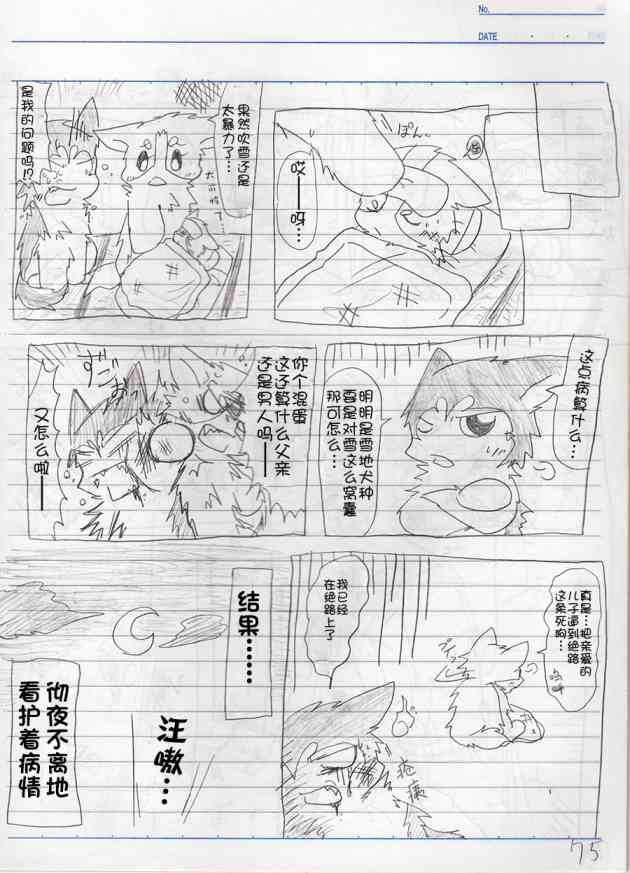 No.
DATE
ぽん。
哎
——
呀…
果然吹雪还是
太暴力了…
是我的问题吗!?
这点病算什么…
明明是雪地犬种
要是对雪这么窝囊
那可怎么…
你个混蛋
这还算什么父亲
还是男人吗——
又怎么啦——
真是…把亲爱的
儿子逼到绝路
这条死狗…
呜呼
我已经
在绝路上了
疮痍
结果……
汪嗷…
彻夜不离地
看护着病情
75